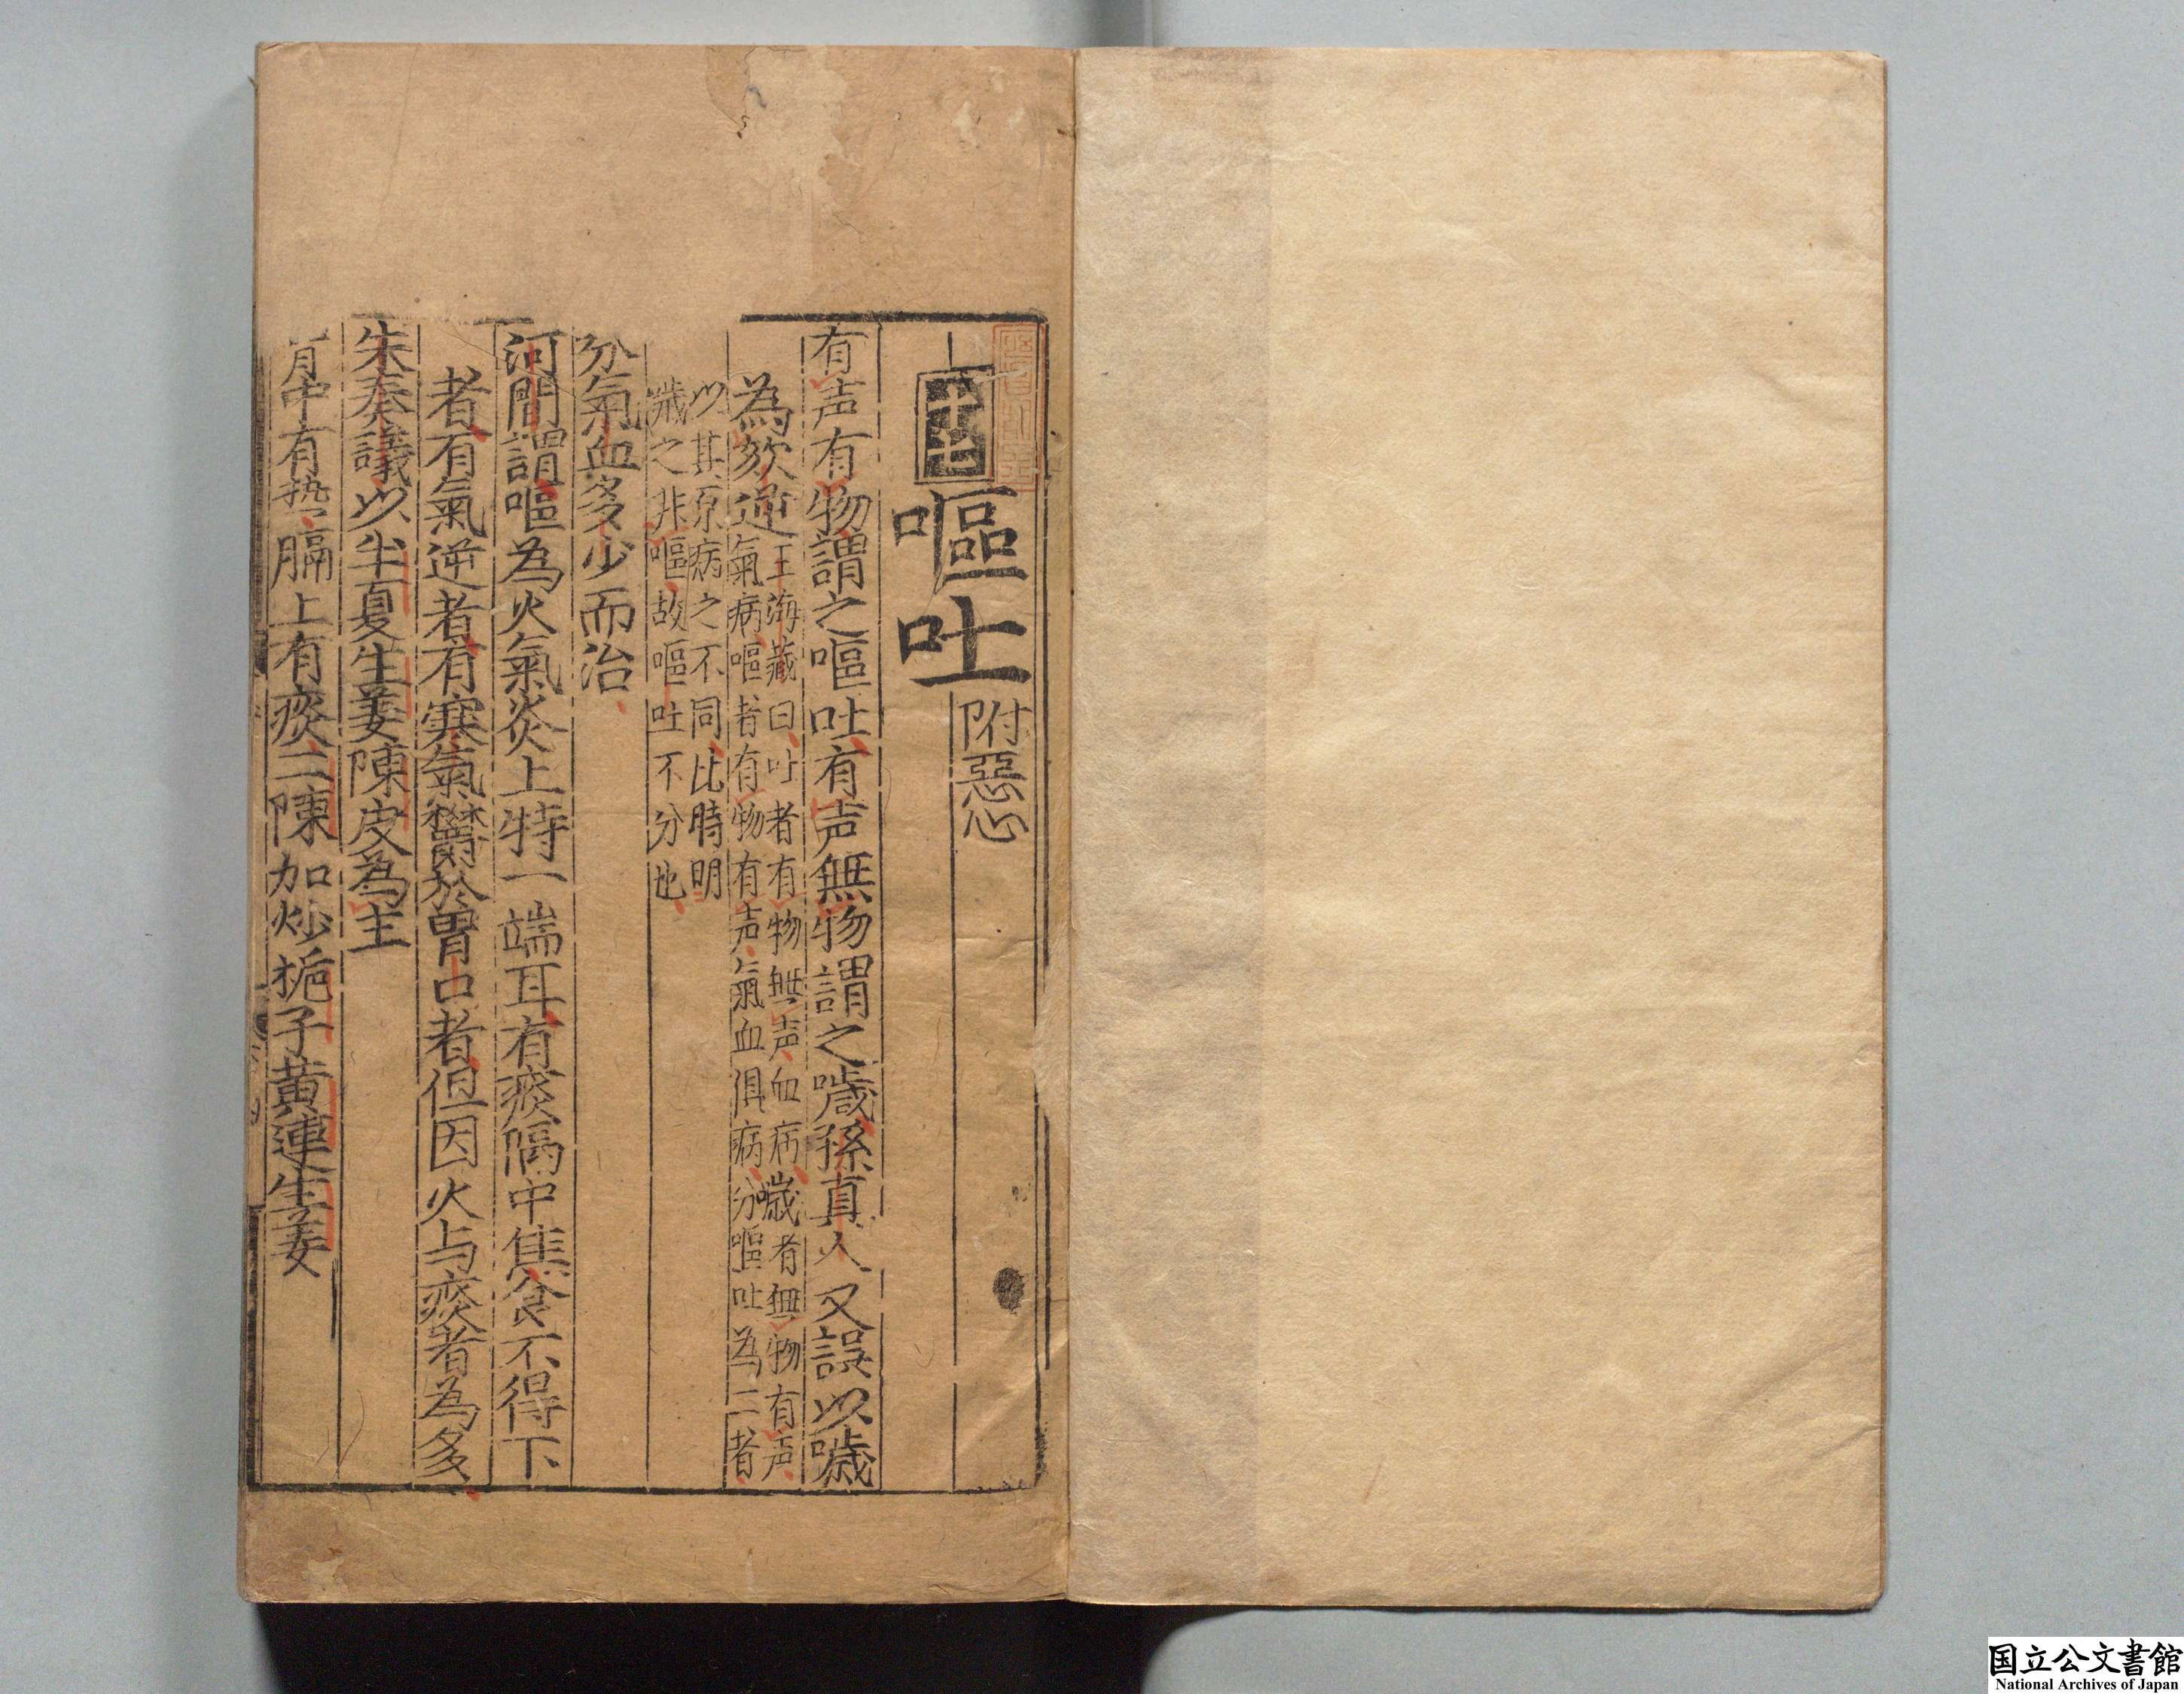 嘔吐 附惡心
有声有物謂之嘔吐有声無物謂之噦孫真人又誤以噦
為欬逆
王海藏曰吐者有物無声血病噦者無物有声
氣病嘔者有物有声氣血俱病分嘔吐為二者
以其原病之不同比時明
噦之非嘔故嘔吐不分也
分氣血多少而治
河間謂嘔為火氣炎上特一端耳有痰隔中焦食不得下
者有氣逆者有寒氣欝於胃口者但因火与痰者為多
朱奏議以半夏生姜陳皮為主
胃中有热膈上有痰二陳加炒栀子黄連生姜
国立公文書館
National Archives of Japan